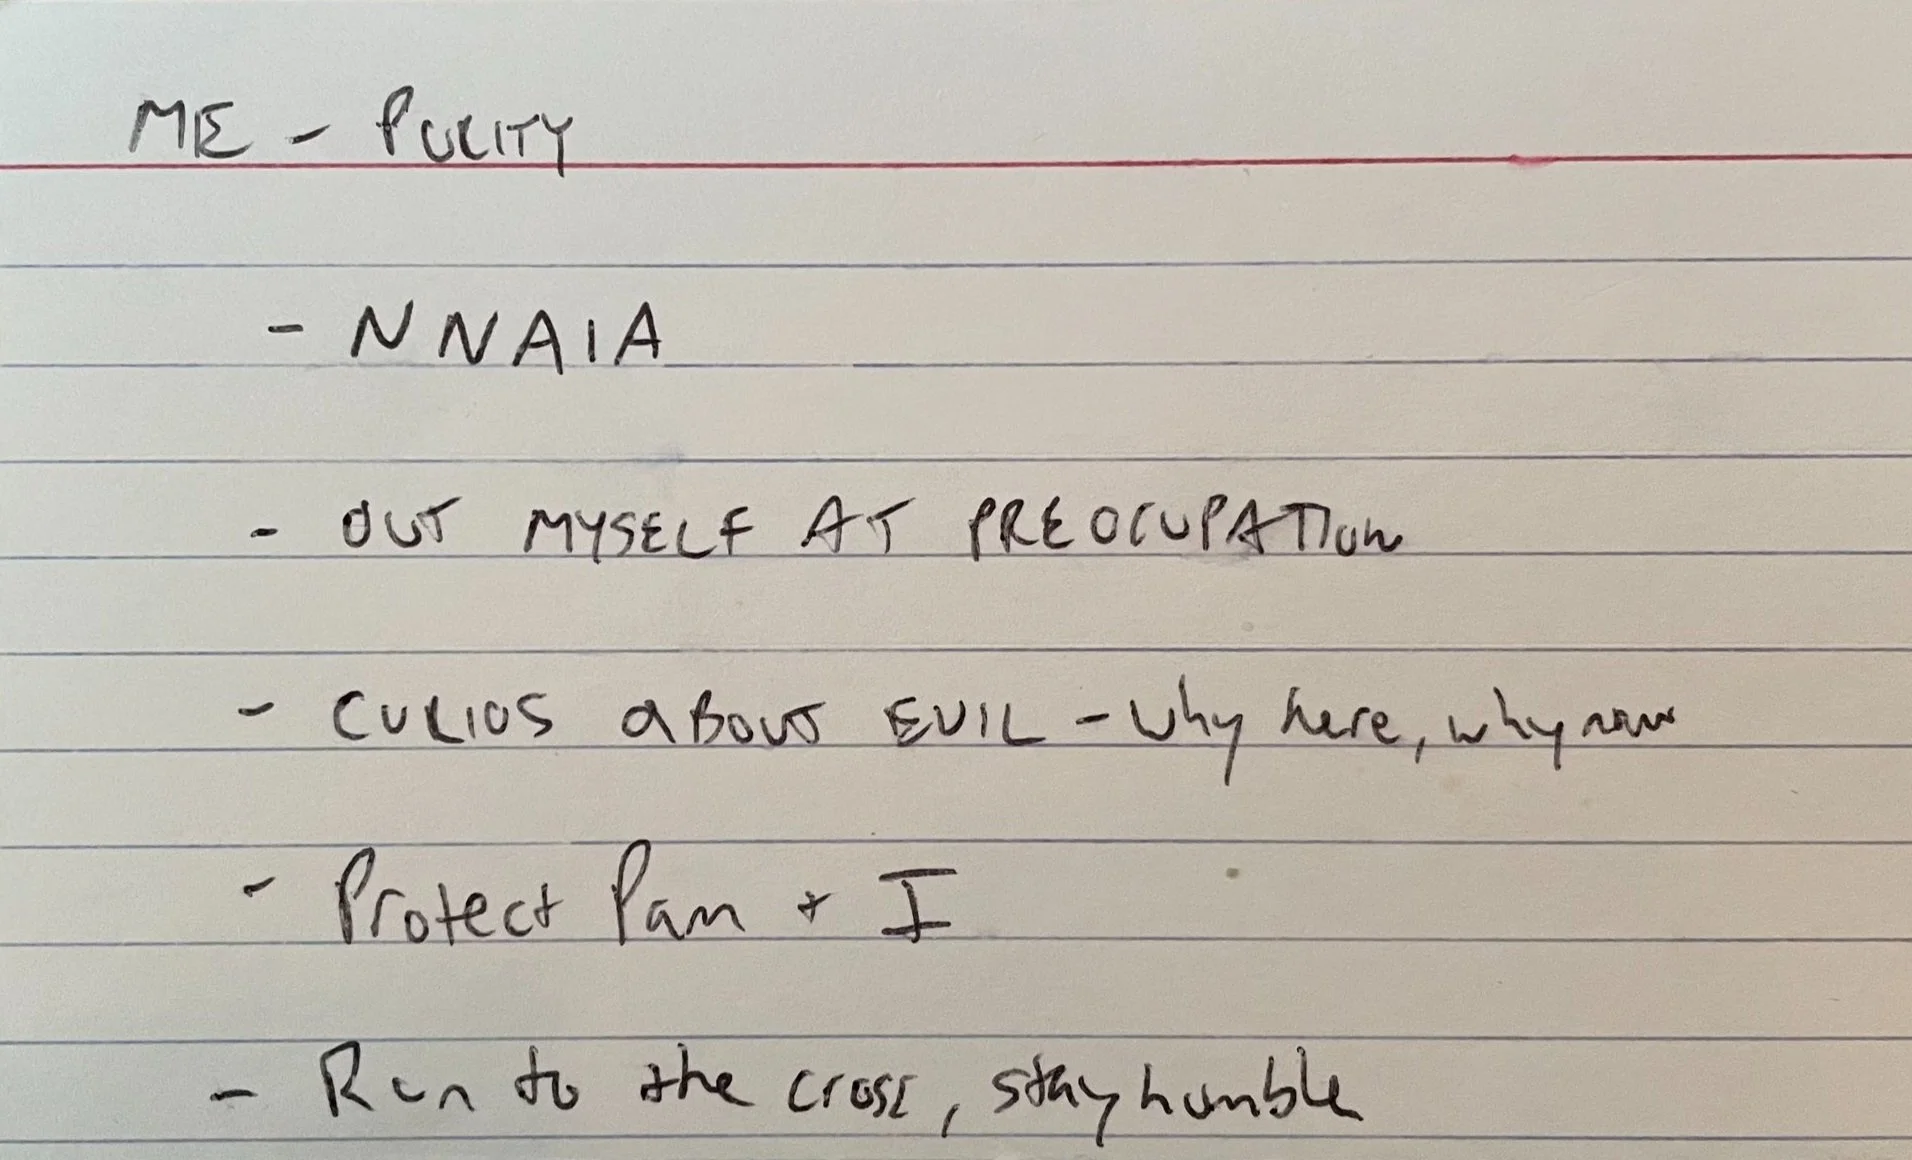 ME - PURITY
- NNAIA
- OUT MYSELF AT PREOCUPATION
- CURIOS ABOUT EVIL - Why here, why now
- Protect Pam + I
- Run to the cross, stay humble